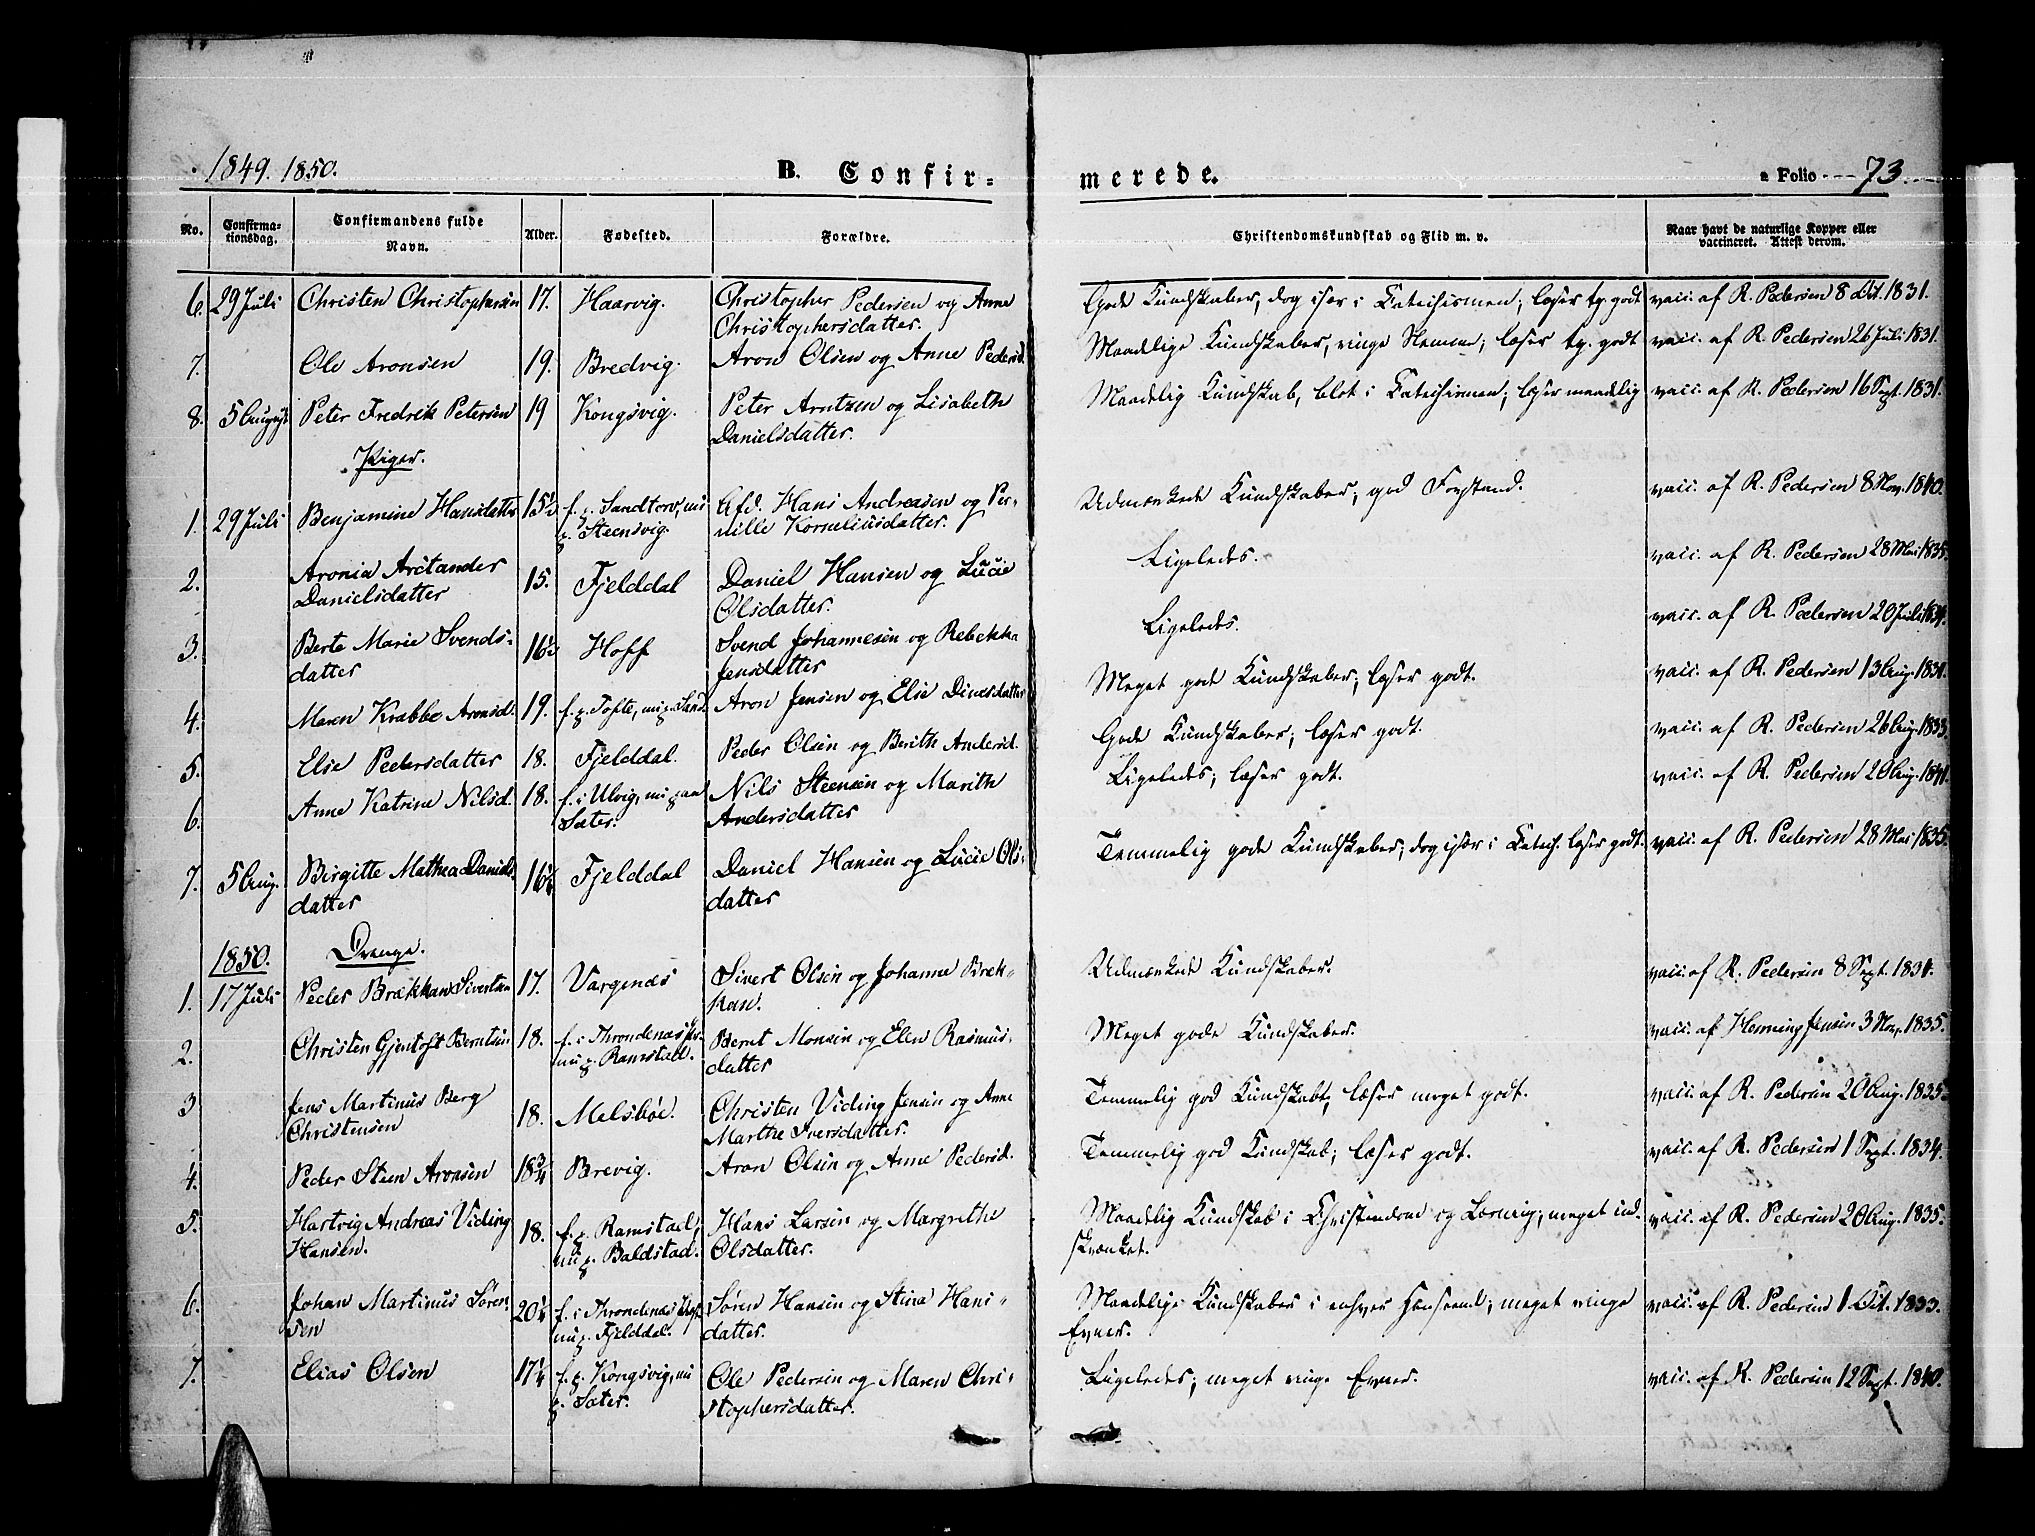 1849. 1850. B. Confir- merede. Folio 73.
No. Confirma-tionsdag. Confirmandens fulde Navn. Alder. Fødested. Forældre. Christendomskundskab og Flid m. v. Naar havt de naturlige Kopper eller vaccineret. Attest derom.
6. 29 Juli Christen Christophersen 17. Haarvig. Christopher Pedersen og Anne Gode Kundskaber, dog især i Katechismen; læser tg. godt vacc. af R. Pedersen 8 Oct. 1831.
Christophersdatter.
7. Ole Aronsen 19. Bredvig. Aron Olsen og Anne Pedersd. Maadelige Kundskaber, ringe Nemme; læser tg. godt vacc. af R. Pedersen 26 Juli 1831.
8. 5 August Peter Fredrik Petersen 19 Kongsvig. Peter Arntzen og Lisabeth Maadelig Kundskab, blot i Katechismen; læser maadelig vacc. af R. Pedersen 16 Sept. 1831.
Danielsdatter.
Piger.
1. 29 Juli Benjamine Hansdatter 15½ f. p. Sandtorv, nu Afd. Hans Andreasen og Per- Udmærkede Kundskaber, god Forstand. vacc. af R. Pedersen 8 Nov. 1840.
p. Steensvig. nille Korneliusdatter.
2. Aronia Arctander 15. Fjelddal Daniel Hansen og Lucie Ligeledes. vacc. af R. Pedersen 28 Mai 1835.
Danielsdatter Olsdatter.
3. Berte Marie Svends- 16½ Hoff Svend Johannesen og Rebekka Ligeledes. vacc. af R. Pedersen 20 Juli 1834.
datter Jensdatter
4. Maren Krabbe Aronsd. 19. f. p. Tofte, nu p. Sand. Aron Jensen og Else Dinesdatter Meget gode Kundskaber; læser godt. vacc. af R. Pedersen 13 Aug. 1831.
5. Else Pedersdatter 18. Fjelddal. Peder Olsen og Berith Andersd. Gode Kundskaber; læser godt. vacc. af R. Pedersen 26 Aug. 1833.
6. Anne Katrine Nilsd. 18. f. i Ulvig, nu paa Nils Steensen og Marith Ligeledes; læser godt. vacc. af R. Pedersen 20 Aug. 1841.
Sæter. Andersdatter
7. 5 Aug. Birgitte Mathea Daniels- 16¼ Fjelddal Daniel Hansen og Lucie Ols- Temmelig gode Kundskaber; dog især i Katech. læser godt. vacc. af R. Pedersen 28 Mai 1835.
datter datter
1850. Drenge.
1. 17 Juli Peder Brækkan Sivertsen 17. Vargenæs Sivert Olsen og Johanne Bræk- Udmærkede Kundskaber. vacc. af R. Pedersen 8 Sept. 1834.
kan.
2. Christen Gjentoft Berntsen 18. f. i Throndenæs Bernt Monsen og Elen Rasmus- Meget gode Kundskaber. vacc. af Henning Jensen 3 Nov. 1835.
nu p. Ramstad. datter
3 Jens Martinus Berg 18. Melsbøe. Christen Viding Jensen og Anne Temmelig god Kundskab; læser meget godt. vacc. af R. Pedersen 20 Aug. 1835.
Christensen Marthe Iversdatter.
4. Peder Steen Aronsen 18¾ Brevig. Aron Olsen og Anne Pedersd. Temmelig god Kundskab; læser godt. vacc. af R. Pedersen 1 Sept. 1834.
5. Hartvig Andreas Viding 18. f. p. Ramstad, Hans Larsen og Margrethe Maadelig Kundskab i Christendom og Læsning, meget ind- vacc. af R. Pedersen 20 Aug. 1835.
Hansen. nu p. Baldstad. Olsdatter. skrænket.
6. Johan Martinus Søren- 20¼ f. i Throndenæs Søren Hansen og Stina Hans- Maadelige Kundskaber i enhver Henseend; meget ringe vacc. af R. Pedersen 1 Oct. 1833.
sen nu p. Fjelddal. datter. Evner.
7. Elias Olsen 17¼ f. p. Kongsvig, nu Ole Pedersen og Maren Chri- Ligeledes; meget ringe Evner. vacc. af R. Pedersen 12 Sept. 1840.
p. Sæter. stophersdatter.